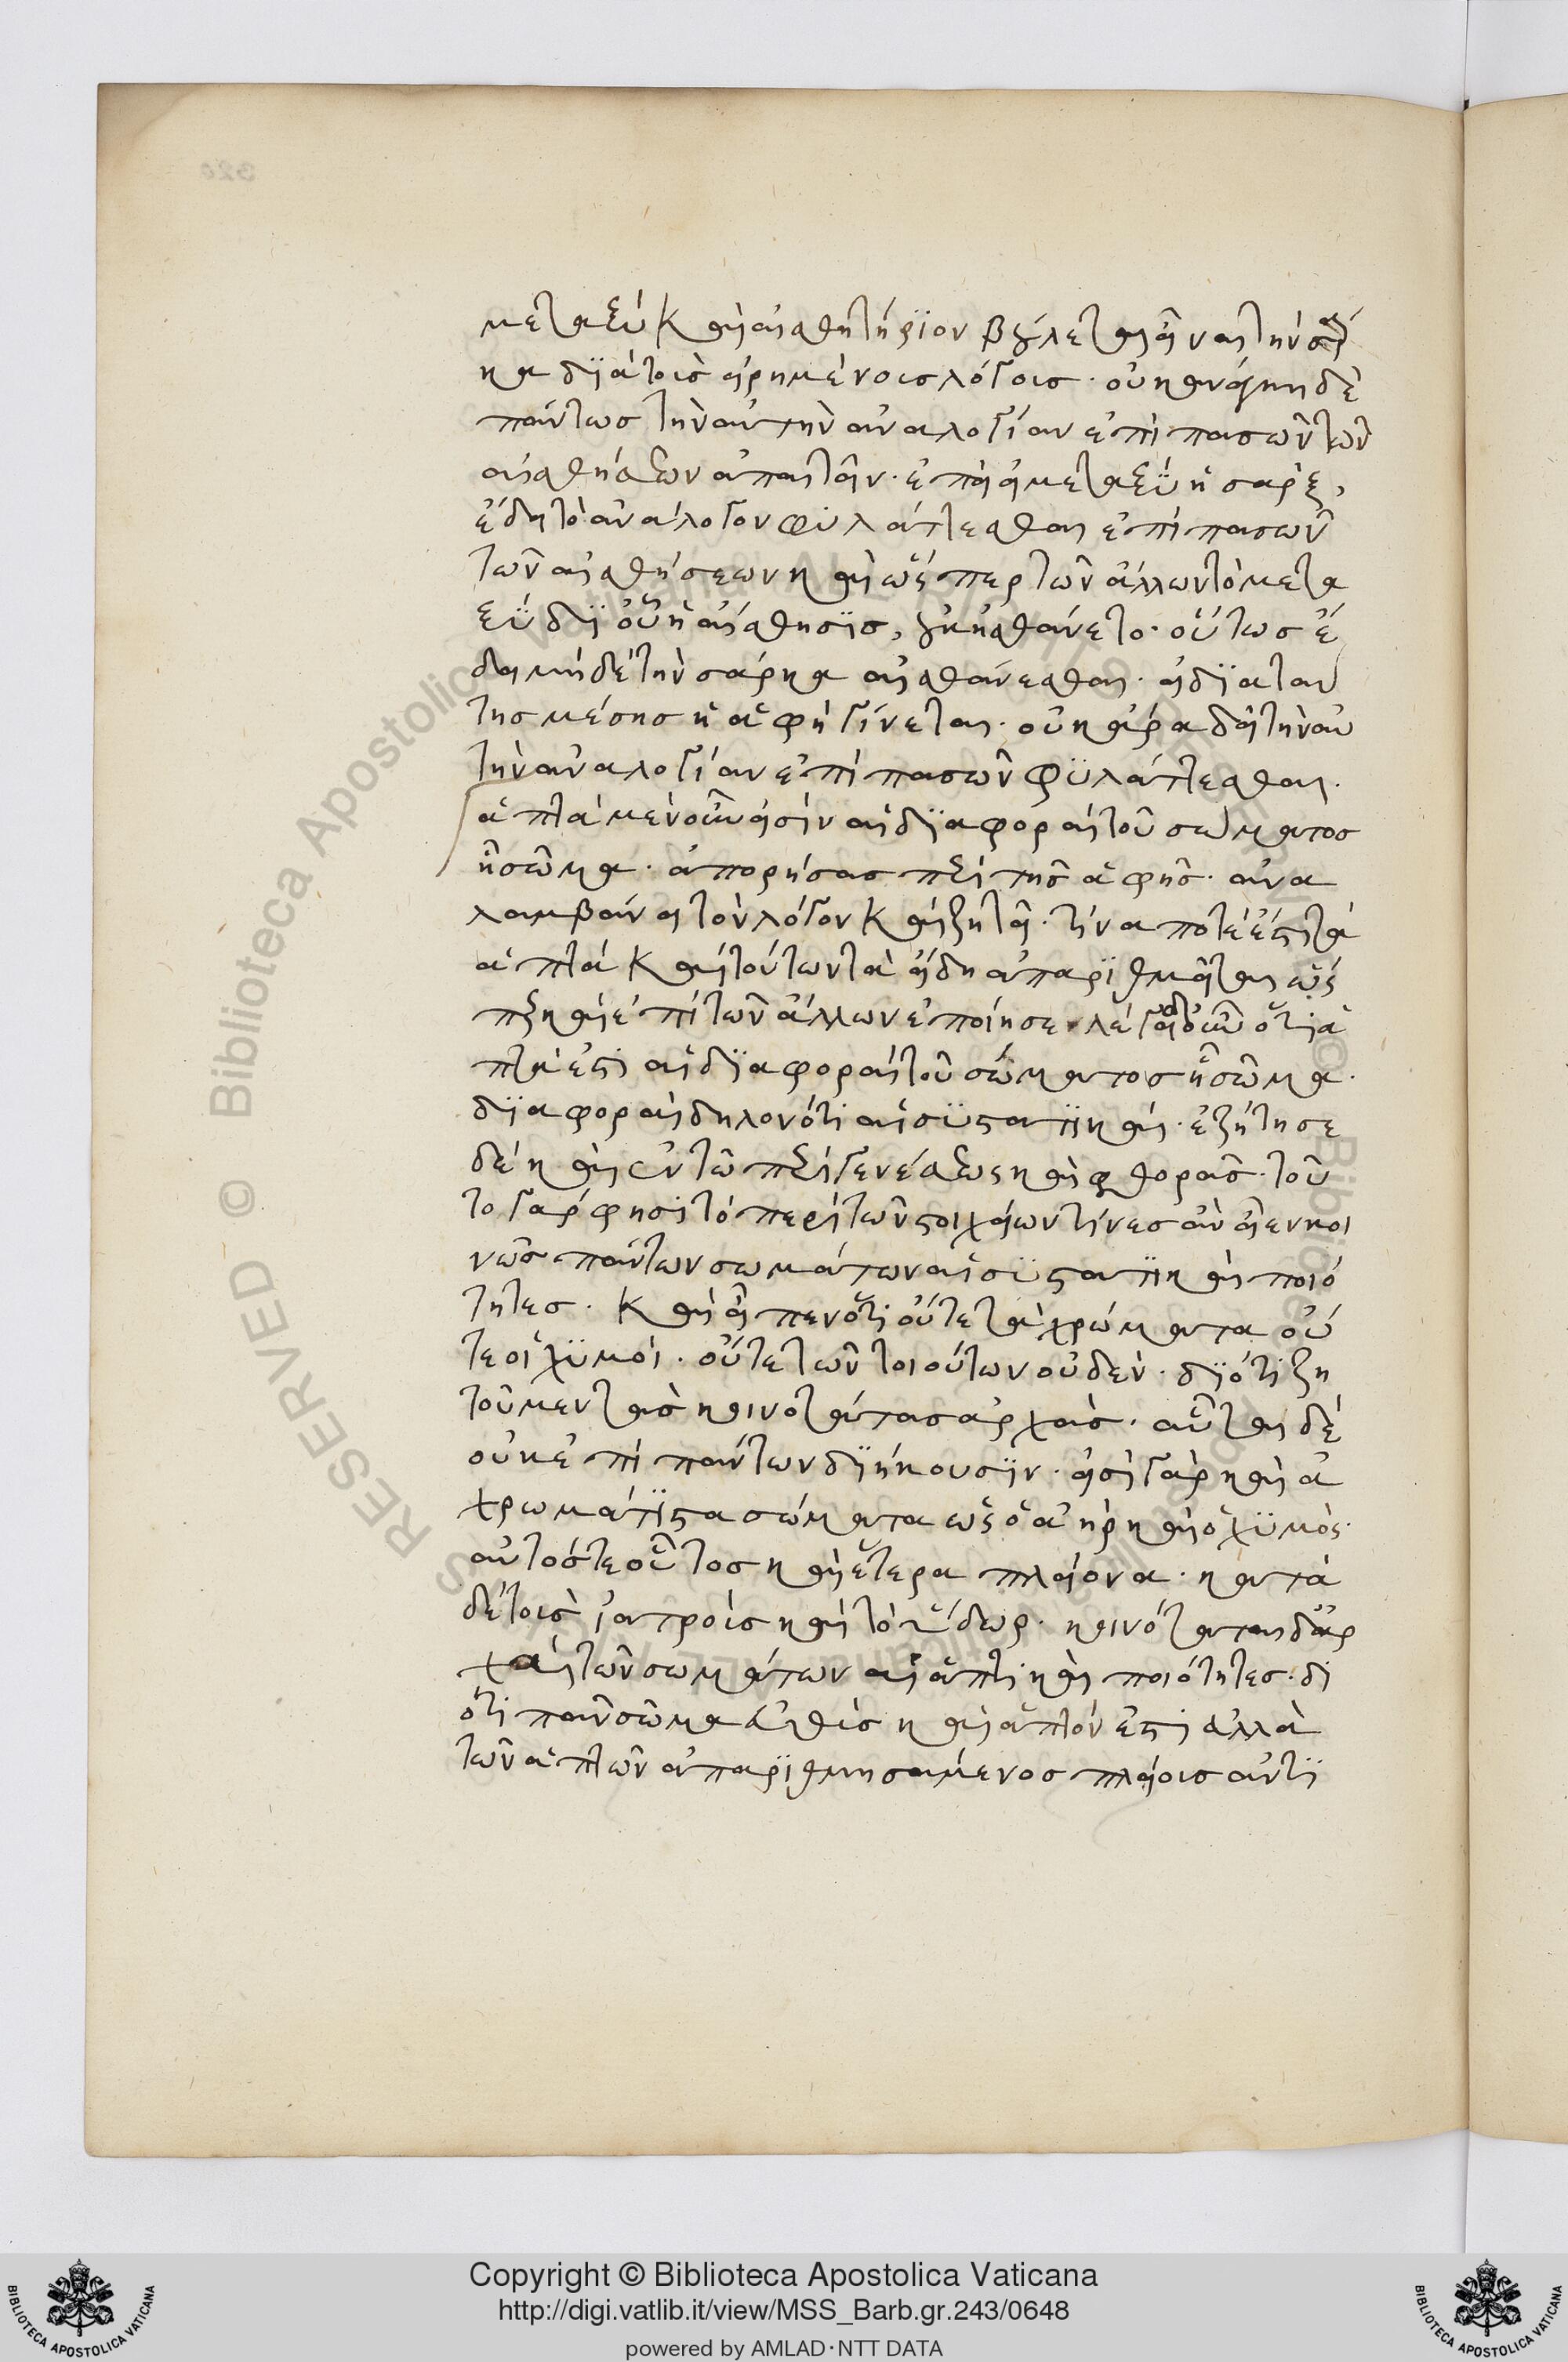 μεταξὺ καὶ αἰσθητήριον βούλεται εἶναι τὴν σάρ
κα διὰ τοῖς εἰρημένοις λόγοις. οὐκ ἀνάγκη δὲ
πάντως τὴν αὐτὴν ἀναλογίαν ἐπὶ πασῶν τῶν
αἰσθήσεων ἀπαιτεῖν. ἐπεὶ εἰ μεταξὺ ἡ σάρξ,
ἔδει τὸ ἀνάλογον φυλάττεσθαι ἐπὶ πασῶν
τῶν αἰσθήσεων καὶ ὥσπερ τῶν ἄλλων τὸ μετα
ξὺ δι' οὗ ἡ αἴσθησις, οὐκ ᾐσθάνετο. οὕτως ἔ
δει μηδὲ τὴν σάρκα αἰσθάνεσθαι. εἰ διὰ ταύ
της μέσης ἡ ἁφὴ γίνεται. οὐκ ἄρα δεῖ τὴν αὐ
τὴν ἀναλογίαν ἐπὶ πασῶν φυλάττεσθαι.
ἁπταὶ μὲν οὖν εἰσὶν αἱ διαφοραὶ τοῦ σώματος
ᾗ σῶμα. ἀπορήσας περὶ τῆς ἁφῆς. ἀνα
λαμβάνει τὸν λόγον καὶ ζητεῖ. τίνα ποτέ ἐστι τὰ
ἁπτὰ καὶ τούτων τὰ εἴδη ἀπαριθμεῖται ὥσ
περ καὶ ἐπὶ τῶν ἄλλων ἐποίησε. λέγει οὖν ὅτι ἁ
πτά ἐστι αἱ διαφοραὶ τοῦ σώματος ᾗ σῶμα.
διαφοραὶ δηλονότι αἱ συστατικαί. ἐζήτησε
δὲ καὶ ἐν τῶ περὶ γενέσεως καὶ φθορᾶς. τοῦ
το γάρ φησι τὸ περὶ τῶν στοιχείων τίνες ἂν εἶεν κοι
νῶς πάντων σωμάτων αἱ συστατικαὶ ποιό
τητες. καὶ εἶπεν ὅτι οὔτε τὰ χρώματα οὔ
τε οἱ χυμοί. οὔτε τῶν τοιούτων οὐδέν. διότι ζη
τοῦμεν τὰς κοινοτάτας ἀρχάς. αὗται δὲ
οὐκ ἐπὶ πάντων διήκουσιν. εἰσὶ γὰρ καὶ ἀ
χρωμάτιστα σώματα ὡς ὁ ἀὴρ καὶ ὁ χυμός.
αὐτός τε οὗτος καὶ ἕτερα πλείονα. κατὰ
δὲ τοῖς ἰατροῖς καὶ τὸ ὕδωρ. κοινόταται δ' ἀρ
χαὶ τῶν σωμάτων αἱ ἁπτικαὶ ποιότητες. δι
ότι πᾶν σῶμα εὐθὺς καὶ ἁπτόν ἐστι ἀλλὰ
τῶν ἁπτῶν ἀπαριθμησάμενος πλείοις ἀντι
Copyright © Biblioteca Apostolica Vaticana
http://digi.vatlib.it/view/MSS_Barb.gr.243/0648
powered by AMLAD·NTT DATA